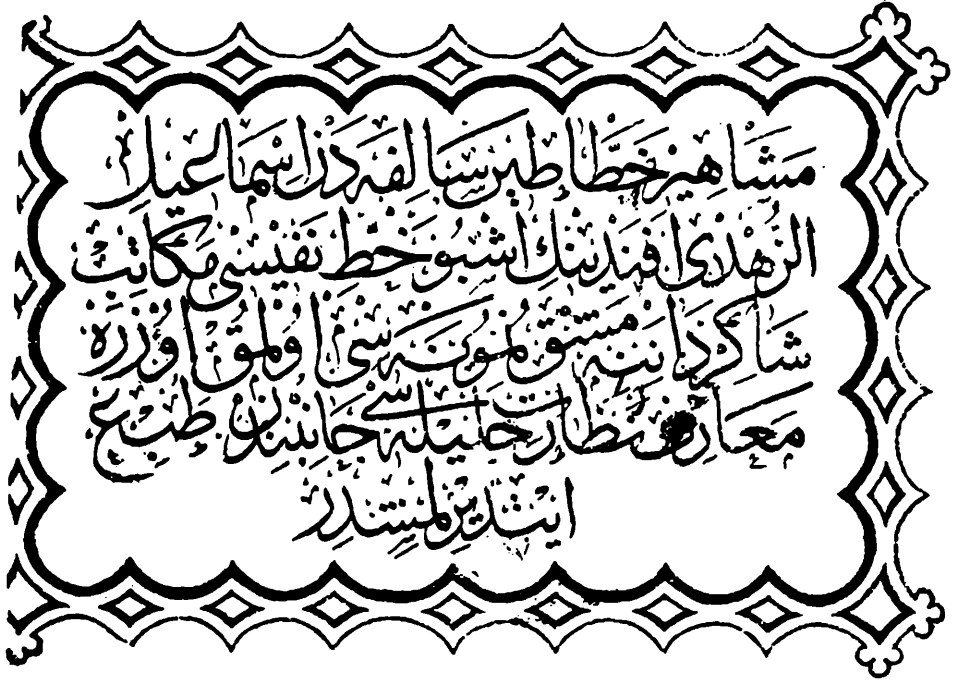 مشاهير خطاطين سالفه دن اسماعيل
الزهدی افندينك اشبو خط نفيسی مكاتب
شاكرداننه مشق نمونه سی اولمق اوزره
معارف نظارت جليله سی جانبندن طبع
ايتديرلمشدر